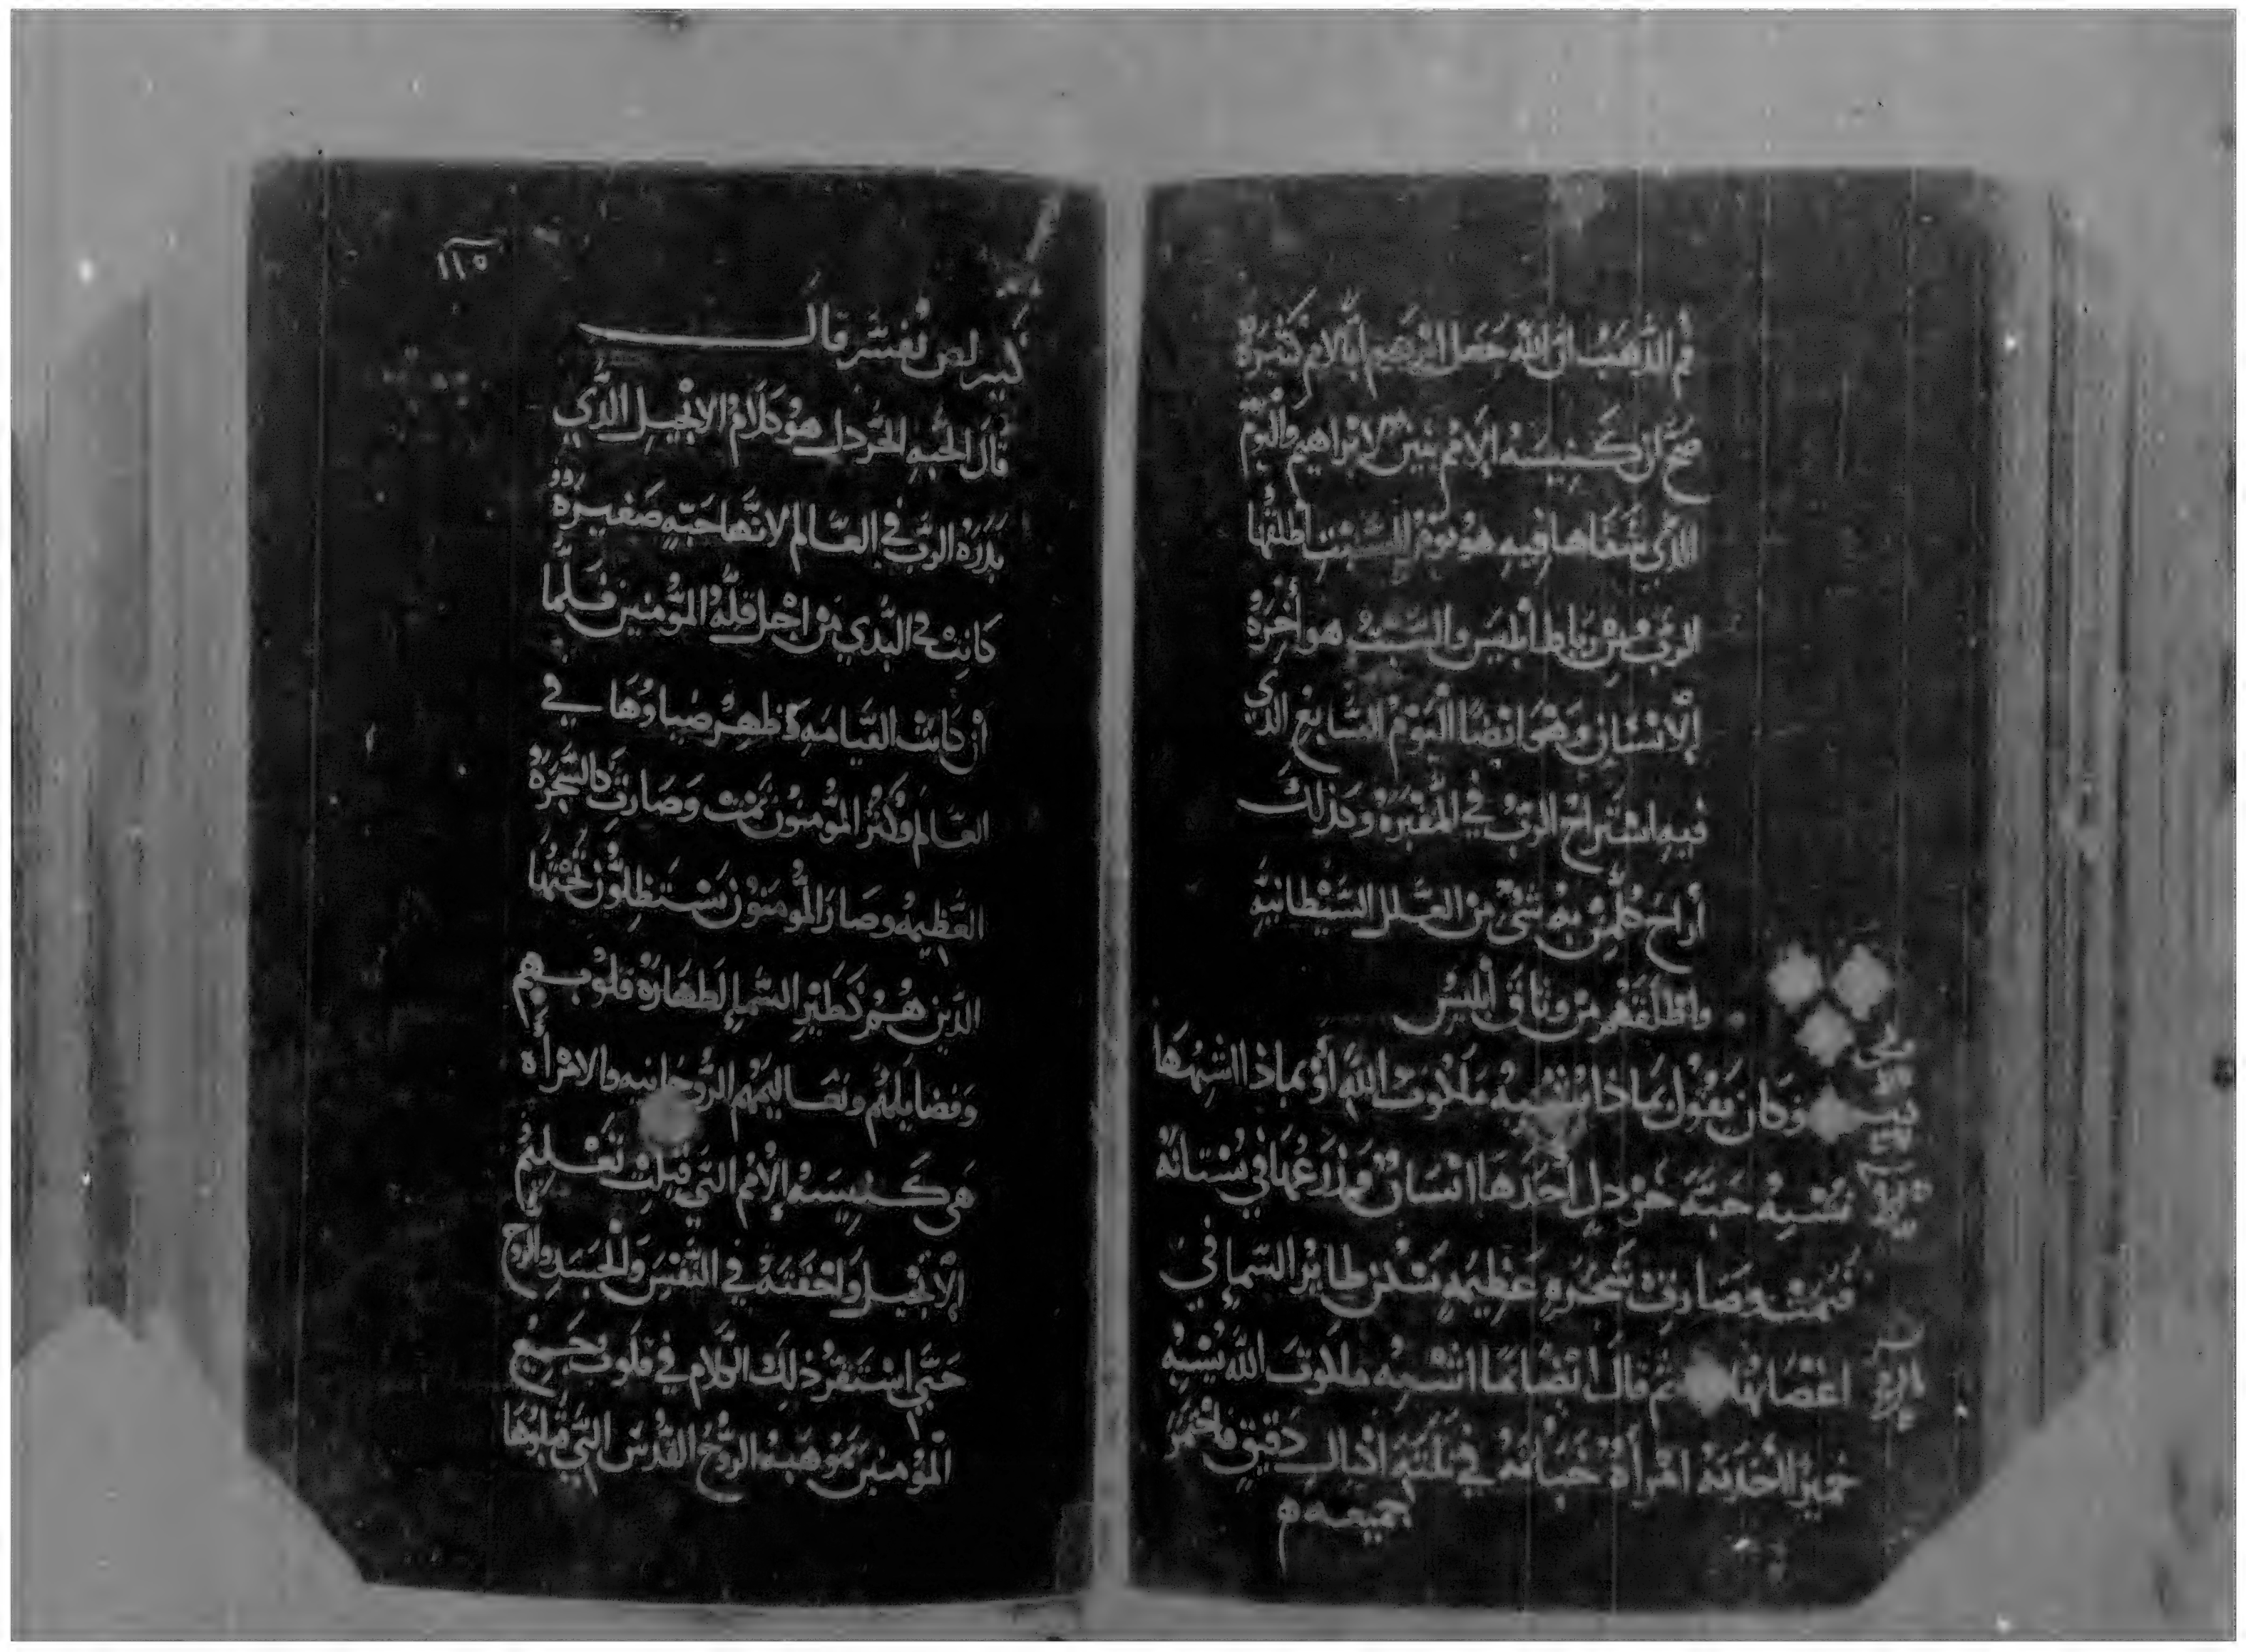 فم الذهب ان الله جعل ابرهيم ابًا لامم كثيرة
صح ان كنيسه الامم بنين لابراهيم واليوم
الذي شفاها فيه هو يوم السبت اطلقها
الرب من رباط ابليس والسبت هو أخرة
الانسان وهو ايضا اليوم السابع الذي
فيه استراح الرب في المقبرة وكذلك
أراح كلمن به شي من العلل الشيطانية
واطلقهم من وثاق ابليس
وكان يقول بماذا نشبه ملكوت الله أو بماذا اشبهها
تشبه حبة خردل أخذها انسان وزرعها في بستانه
فنمت وصارت شجره عظيمه يسكن طاير السما في
اغصانها ثم قال ايضا بما اشبه ملكوت الله يشبه
خميرًا أخذته امرأة خبأته في ثلثه اكيال دقيق فاختمر
جميعه
١١٥
كيرلص يفسر قال
قال الحبه الخردل هو كلام الانجيل الذي
بذره الرب في العالم لانها حبه صغيرة
كانت في البدي من اجل قله المؤمنين فلما
أن كانت القيامه ظهر ضياوها في
العالم وكثر المؤمنون نمت وصارت كالشجرة
العظيمه وصار المؤمنون يستظلون تحتها
الذين هم كطير السما لطهارة قلوبهم
وفضايلهم وتعاليمهم الروحانيه والامرأه
هي كنيسة الامم التي قبلت تعليم
الانجيل واخفته في النفس والجسد والروح
حتي استقر ذلك الكلام في قلوب جميع
المؤمنين بموهبة الروح القدس التي قبلوها